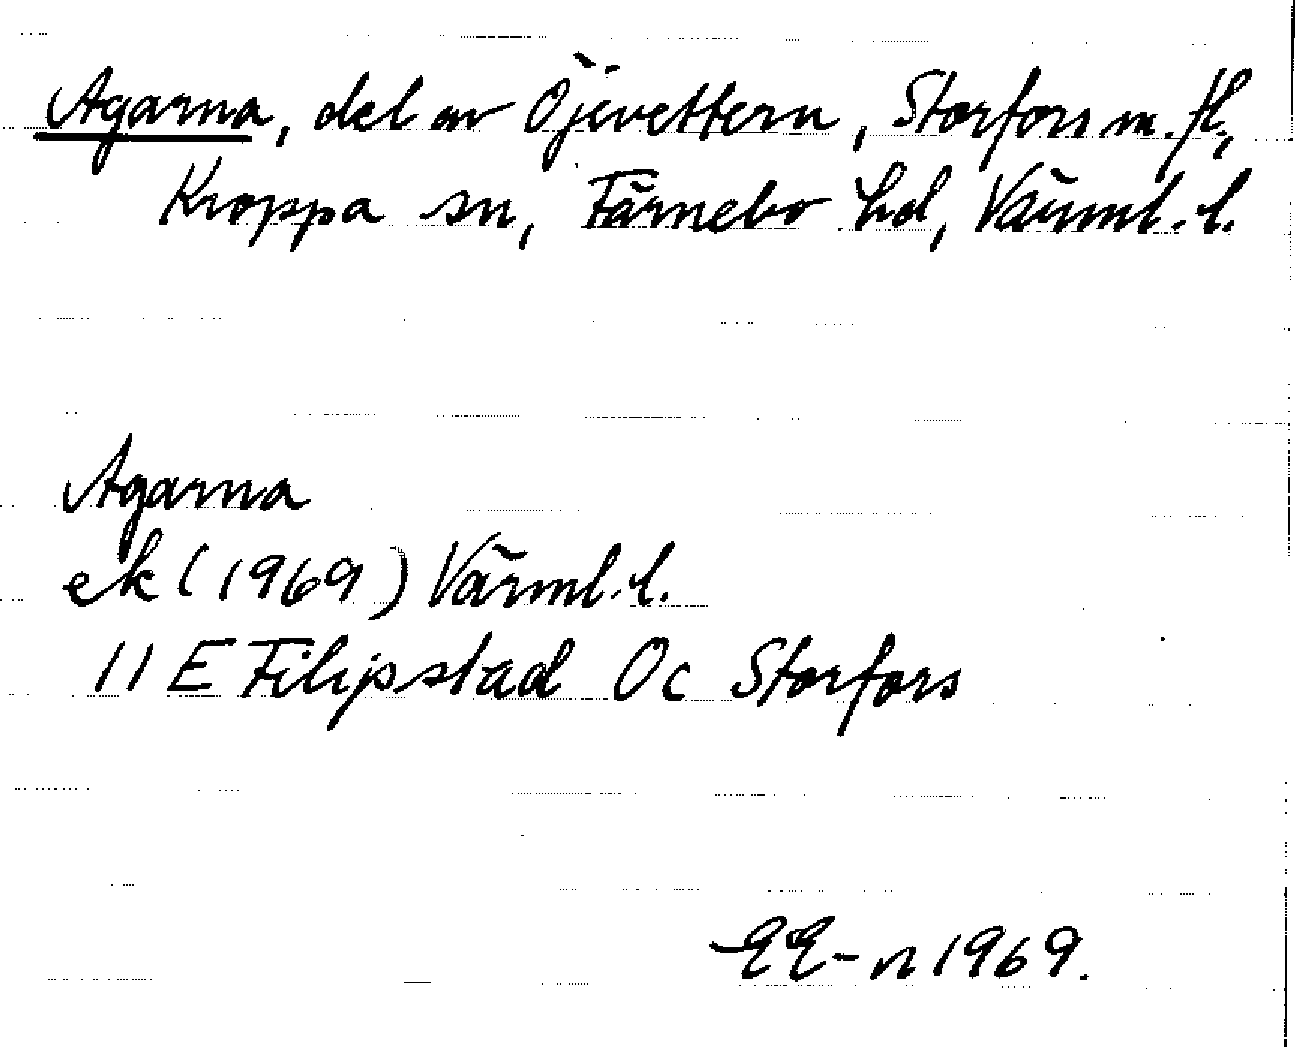 Agarna, del av Öjevettern, Storfors m. fl,
Kroppa sn, Färnebo hd, Värml. l.
Agarna
ek (1969) Värml. l.
11 E Filipstad Oc Storfors
EE-n 1969.